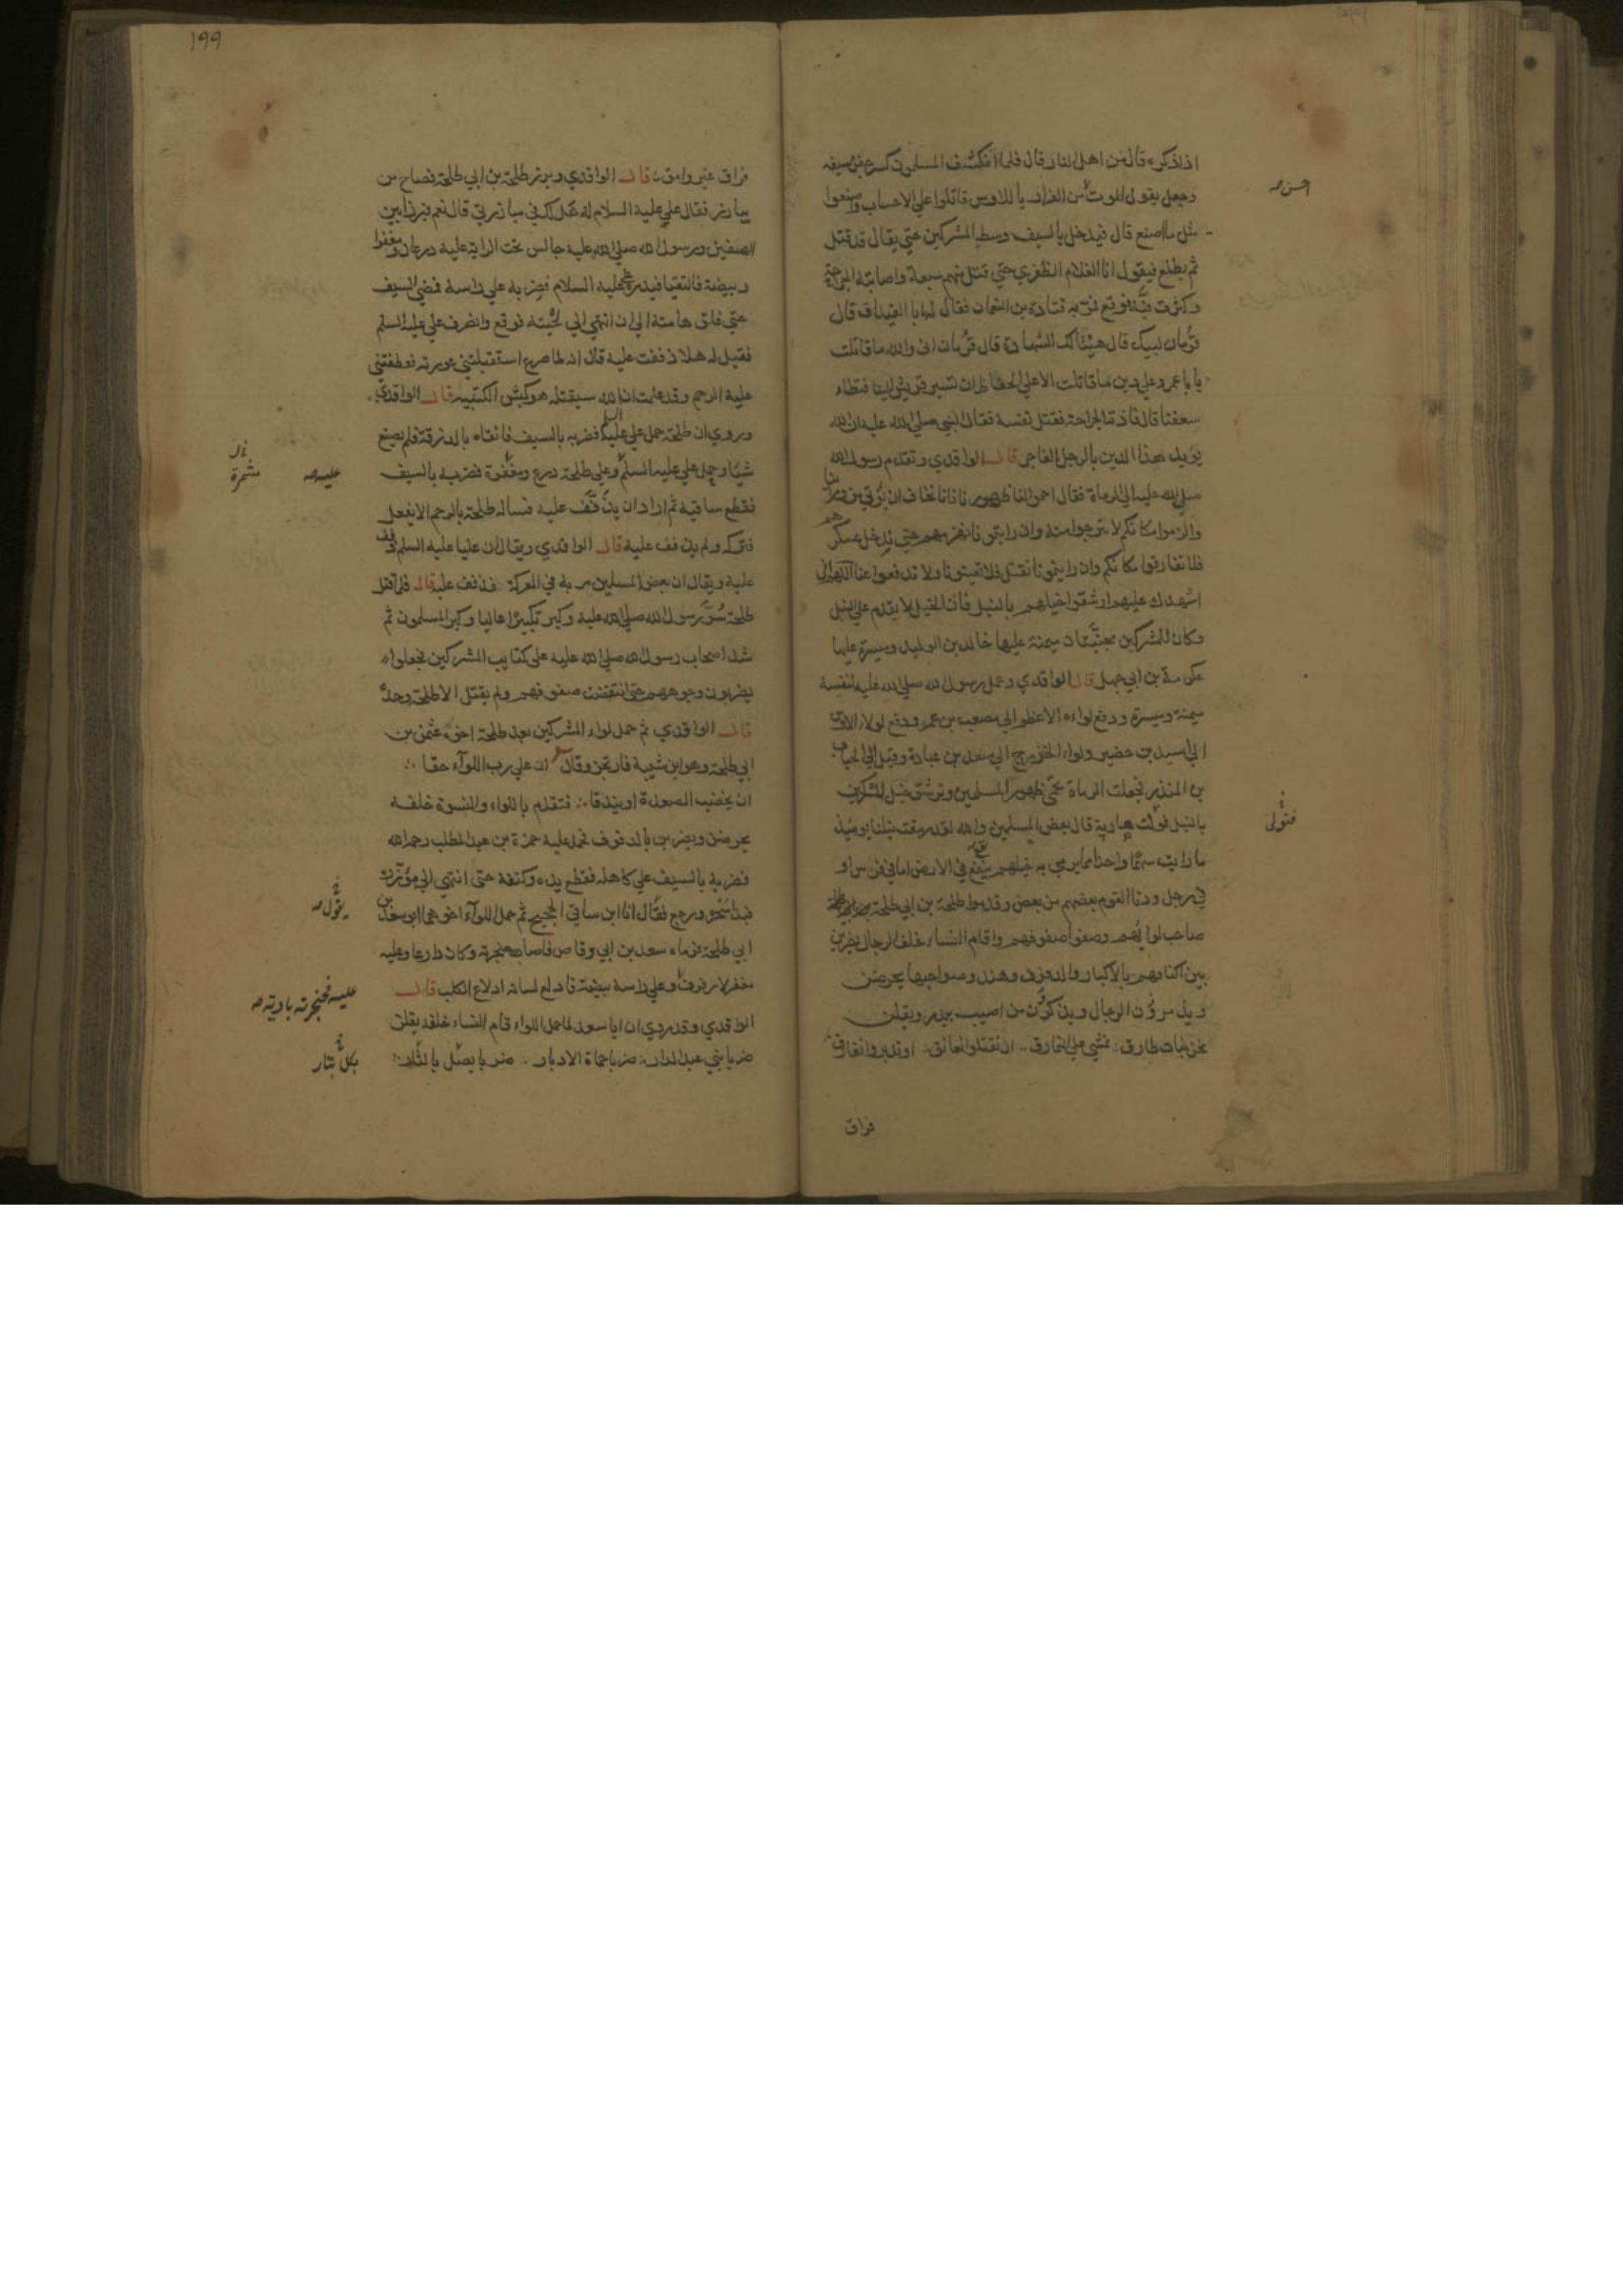 اذا ذكره قال من اهل النار قال فلما انكشف المسلمون كسر جفن سيفه
وجعل يقول الموت من الفرار يا للاوس قاتلوا علي الاحساب واصنعوا
احسن صح
مثل ما اصنع قال فيدخل بالسيف وسط المشركين حتي يقال قد قتل
ثم يطلع فيقول انا الغلام الظفري حتي قتل منهم سبعة واصابته الجراحة
وكثرت فيه فوقع فمر به قتادة بن النعمان فقال له ابا الغيداق قال
قزمان لبيك قال هنيئا لك الشهادة قال قزمان اني والله ما قاتلت
يا با عمرو علي دين ما قاتلت الا علي الحفاظ ان تسير قريش الينا فتطاء
سعفنا قال فاذته الجراحة فقتل نفسه فقال النبي صلي الله عليه ان الله
يؤيد هذا الدين بالرجل الفاجر قال الواقدي وتقدم رسول الله
صلي الله عليه الي الرماة فقال احموا لنا ظهورنا فانا نخاف ان نؤتي من ورائنا
والزموا مكانكم لا تبرحوا منه وان رايتمونا نهزمهم حتي ندخل عسكرهم
فلا تفارقوا مكانكم وان رايتمونا نقتل فلا تعينونا ولا تدفعوا عنا اللهم اني
اشهدك عليهم ارشقوا خيلهم بالنبل فان الخيل لا يقدم علي النبل
وكان للمشركين مجنبتان ميمنة عليها خالد بن الوليد وميسرة عليها
عكرمة بن ابي جهل قال الواقدي وعمل رسول الله صلي الله عليه لنفسه
ميمنة وميسرة ودفع لواءه الاعظم الي مصعب بن عمير ودفع لواء الاوس
الي اسيد بن حضير ولواء الخزرج الي سعد بن عبادة وقيل الي الحباب
بن المنذر فجعلت الرماة تحمي ظهور المسلمين وترشق خيل المشركين
بالنبل فولت هاربة قال بعض المسلمين والله لقد رمقت نبلنا يومئذ
فتولي
ما رايت سهما واحدا مما يرمي به خيلهم يقع في الارض اما في فرس او
في رجل ودنا القوم بعضهم من بعض وقدموا طلحة بن ابي طلحة
صاحب لوائهم وصفوا صفوفهم واقاموا النساء خلف الرجال يضربن
بين اكتافهم بالاكبار والدفوف وهند وصواحبها يحرضن
ويذمرون الرجال ويذكرن من اصيب ببدر ويقلن
نحن بنات طارق نمشي علي النمارق ان تقبلوا نعانق او تدبروا نفارق
فراق
١٩٩
فراق غير وامق قال الواقدي وبرز طلحة بن ابي طلحة فصاح من
يبارز فقال علي عليه السلام له هل لك في مبارزتي قال نعم فبرزا بين
الصفين ورسول الله صلي الله عليه جالس تحت الراية عليه درعان ومغفر
وبيضة فالتقيا فبدره علي عليه السلام فضربه علي راسه فمضي السيف
حتي فلق هامته الي ان انتهي الي لحيته فوقع وانصرف علي عليه السلم
فقيل له هلا ذففت عليه قال انه لما صرع استقبلتني عورته فعطفتني
عليه الرحم وقد علمت ان الله سيقتله هو كبش الكتيبه قال الواقدي
وروي ان طلحة حمل علي علي عليه السلم فضربه بالسيف فاتقاه بالدرقة فلم يصنع
شيئا وحمل علي عليه السلم وعلي طلحة درع ومغفر فضربه بالسيف
عليه صح
مشمرة
فقطع ساقيه ثم اراد ان يذفف عليه فساله طلحة بالرحم الا يفعل
فتركه ولم يذفف عليه قال الواقدي ويقال ان عليا عليه السلم ذفف
عليه ويقال ان بعض المسلمين مر به في المعركة فذفف عليه قال فلما قتل
طلحة سر رسول الله صلي الله عليه وكبر تكبيرا عاليا وكبر المسلمون ثم
شد اصحاب رسول الله صلي الله عليه علي كتايب المشركين فجعلوا
يضربون وجوههم حتي انتقضت صفوفهم ولم يقتل الا طلحة وحده
قال الواقدي ثم حمل لواء المشركين بعد طلحة اخوه عثمن بن
ابي طلحة وهو ابن شيبة فارتجز وقال ان علي رب اللوآء حقا
ان يخضب الصعدة او يندقا فتقدم باللواء والنسوة خلفه
يحرضن ويضربن بالدفوف فحمل عليه حمزة بن عبد المطلب رحمه الله
فضربه بالسيف علي كاهله فقطع يده وكتفه حتي انتهي الي مؤتزره
فبدا سحره ورجع فقال انا ابن ساقي الحجيج ثم حمل اللوآء اخوهما ابو سعد بن
يقول صح
ابي طلحة فرماه سعد بن ابي وقاص فاصاب حنجرته وكان دارعا وعليه
مغفر لا رفرف وعلي راسه بيضة فادلع لسانه ادلاع الكلب قال
عليه فحنجرته بادية صح
الواقدي وقد روي ان ابا سعد لما حمل اللواء قام النساء خلفه يقلن
ضربا بني عبد الدار ضربا حماة الادبار ضربا
بكل بتار